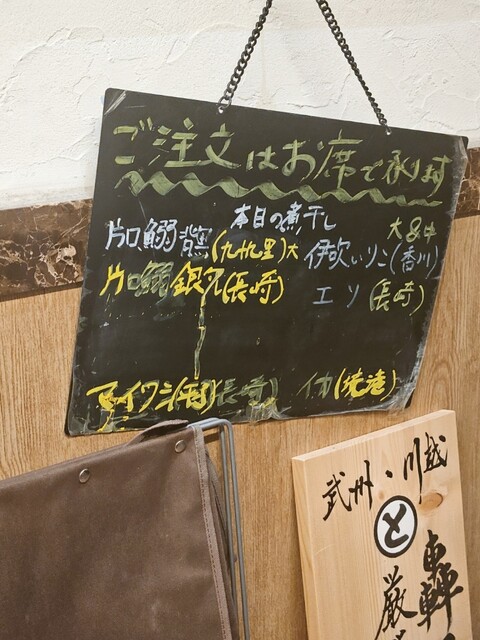 ご注文はお席で承ります
本日の煮干し
片口鰯 背黒(九十九里)大
大&中
伊吹いりこ(香川)
片口鰯 銀兄(長崎)
エソ(長崎)
マイワシ(平)(長崎)
イカ(焼津)
武州・川越
と
轟
厳